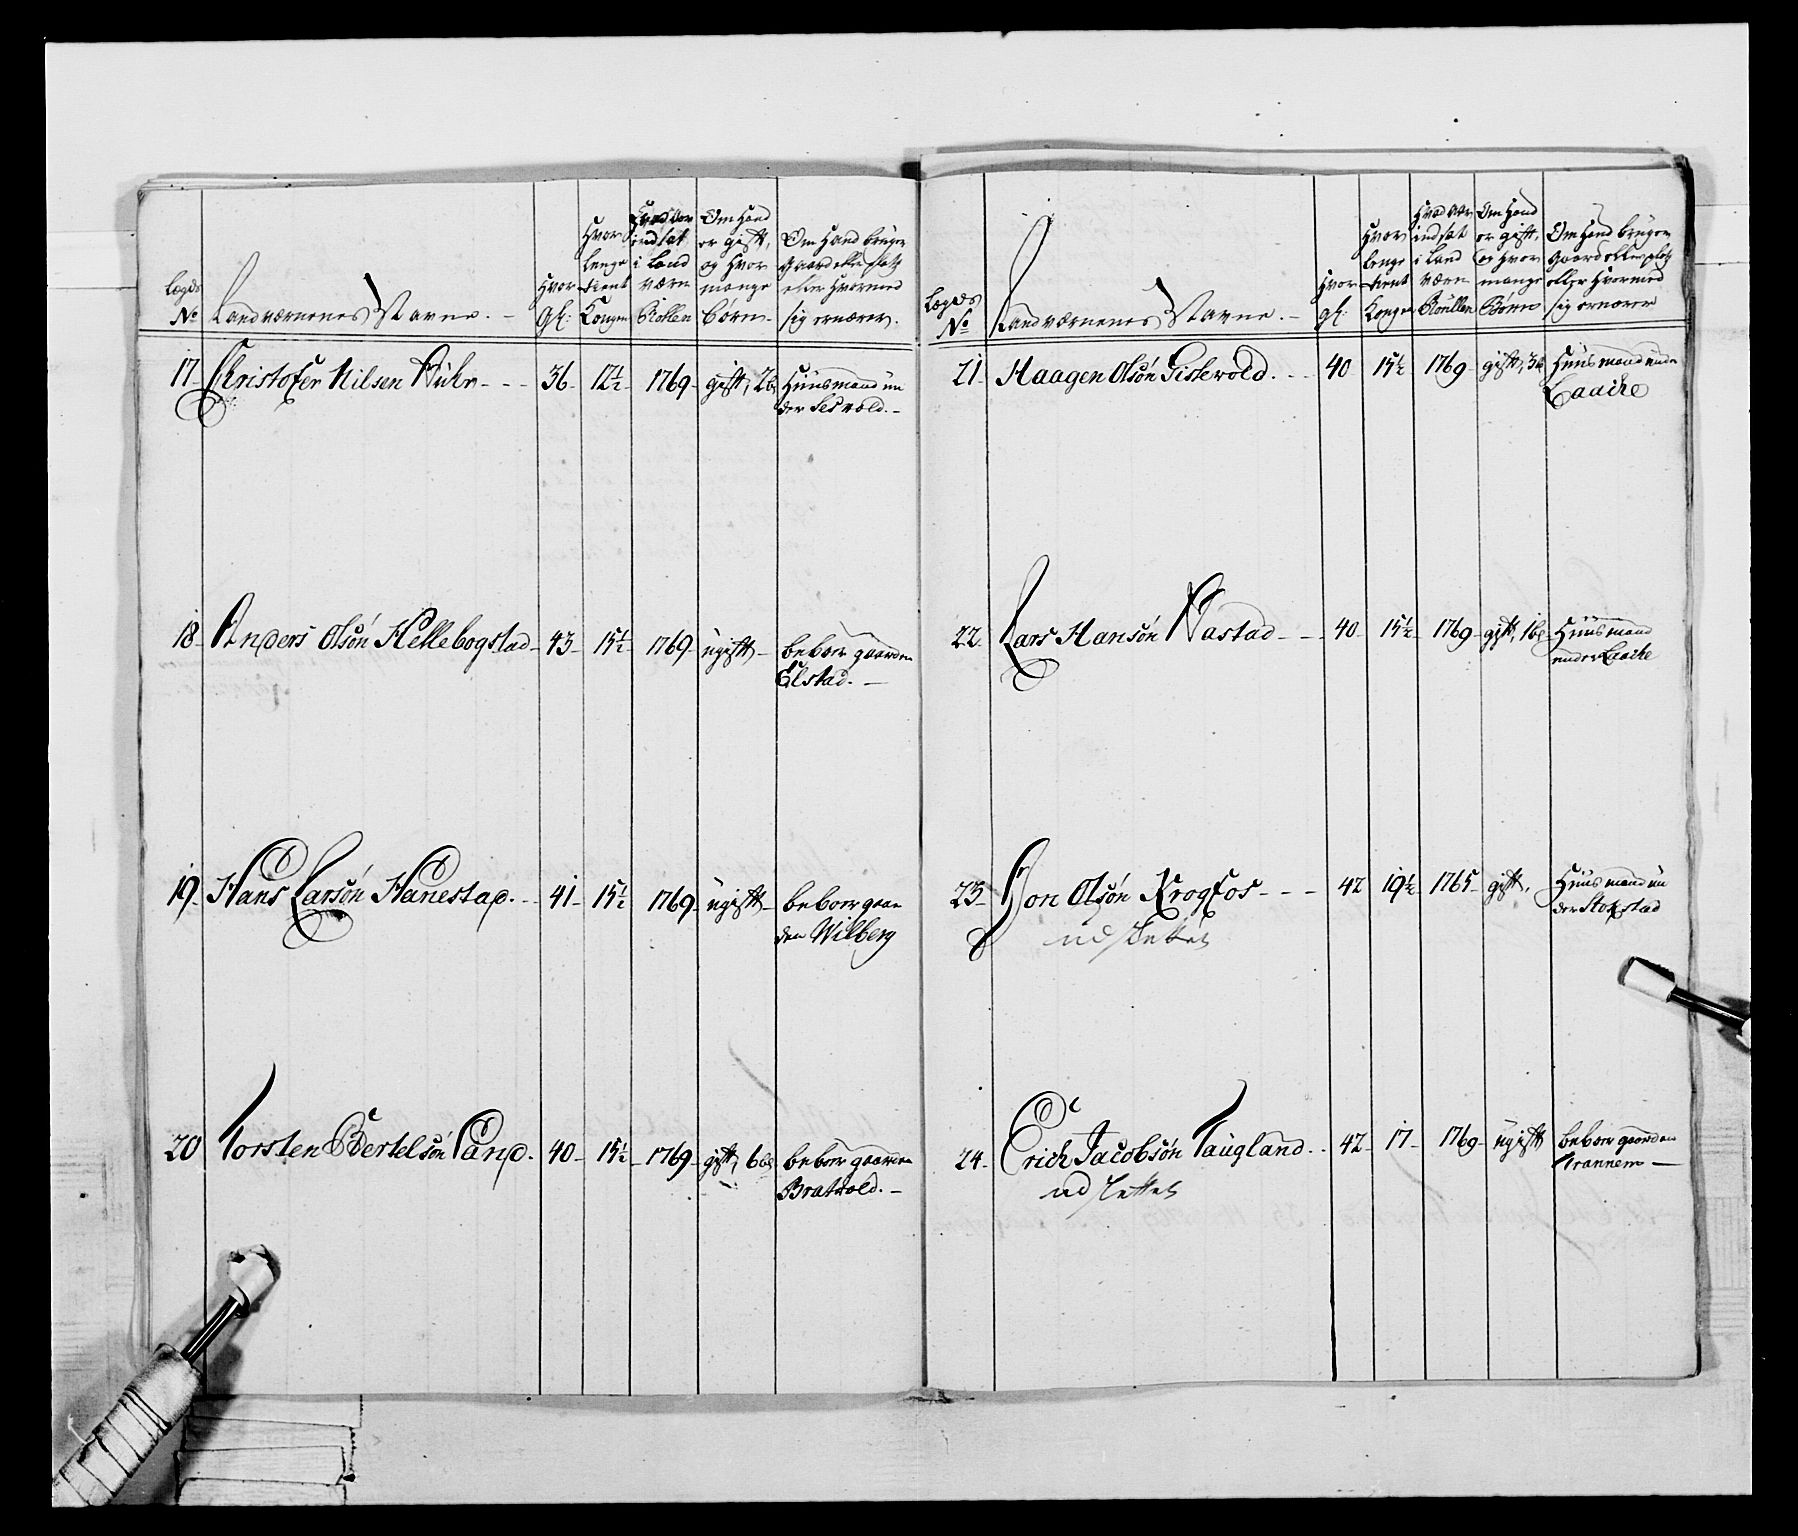 Lægds No
Landværnenes Navne.
Hvor gl:
Hvor lenge tient Kongen
Hvad aar indsat i Land værn Rollen
Om Hand er gift, og Hvor mange børn
Om Hand bruger Gaard eller platz eller Hvormed sig ernærer.
17 Christofer Nilsen Ruhr 36 12½ 1769 gift, 2b Huusmand un
der Sesvold.
18 Anders Olsøn Hellebogstad 43 15½ 1769 ugift beboer gaarden
Elstad.
19 Hans Larsøn Hanestad 41 15½ 1769 ugift beboer gaar
den Wilberg
20 Torsten Bertelsøn Sand 40 15½ 1769 gift, 6b beboer gaarden
Bratvold.
Lægds No
Landværnenes Navne.
Hvor gl:
Hvor lenge tient Konge
Hvad aar indsat i Land værn Roullen
Om Hand er gift, og Hvor mange Børn
Om Hand bruger Gaard eller platz eller Hvormed sig ernærer
21 Haagen Olsøn Gislevold 40 15½ 1769 gift, 3b Huusmand unde
Laache
22 Lars Hansøn Nastad 40 15½ 1769 gift, 1b Huusmand
under Laache
23 Jon Olsøn Krogfos 42 19½ 1765 gift, Huusmand un
udslettet der Stokstad
24 Erich Jacobsøn Taugland 42 17 1769 ugift beboer gaarden
udslettet Trannem